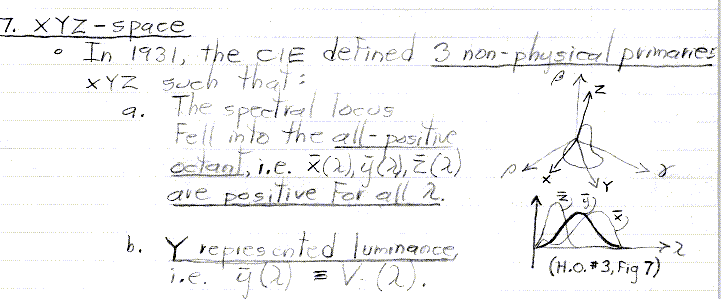 7. XYZ-space
• In 1931, the CIE defined 3 non-physical primaries
XYZ such that:
a. The spectral locus
Fell into the all-positive
octant, i.e. x̄(λ), ȳ(λ), z̄(λ)
are positive For all λ.
b. Y represented luminance,
i.e. ȳ(λ) ≡ V(λ).
β Z
ρ X Y γ
z̄ ȳ x̄
λ
(H.O.#3, Fig 7)